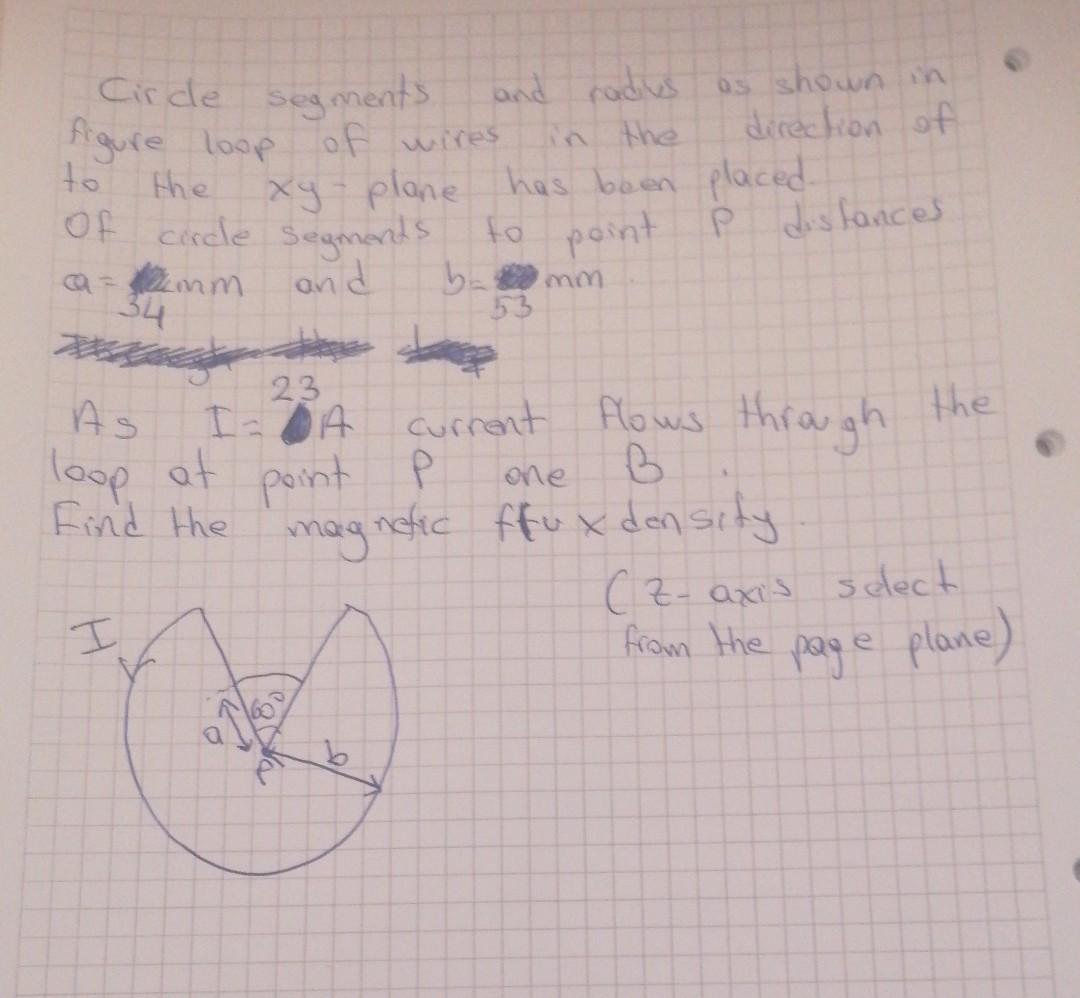 Circle segments and radius as shown in
figure loop of wires in the direction of
to the xy-plane has been placed.
Of circle segments to point P distances
a= mm and b= mm
34 53
23
As I= A current flows through the
loop at point P one B .
Find the magnetic flux density.
(z-axis select
from the page plane)
I
60°
a
b
P